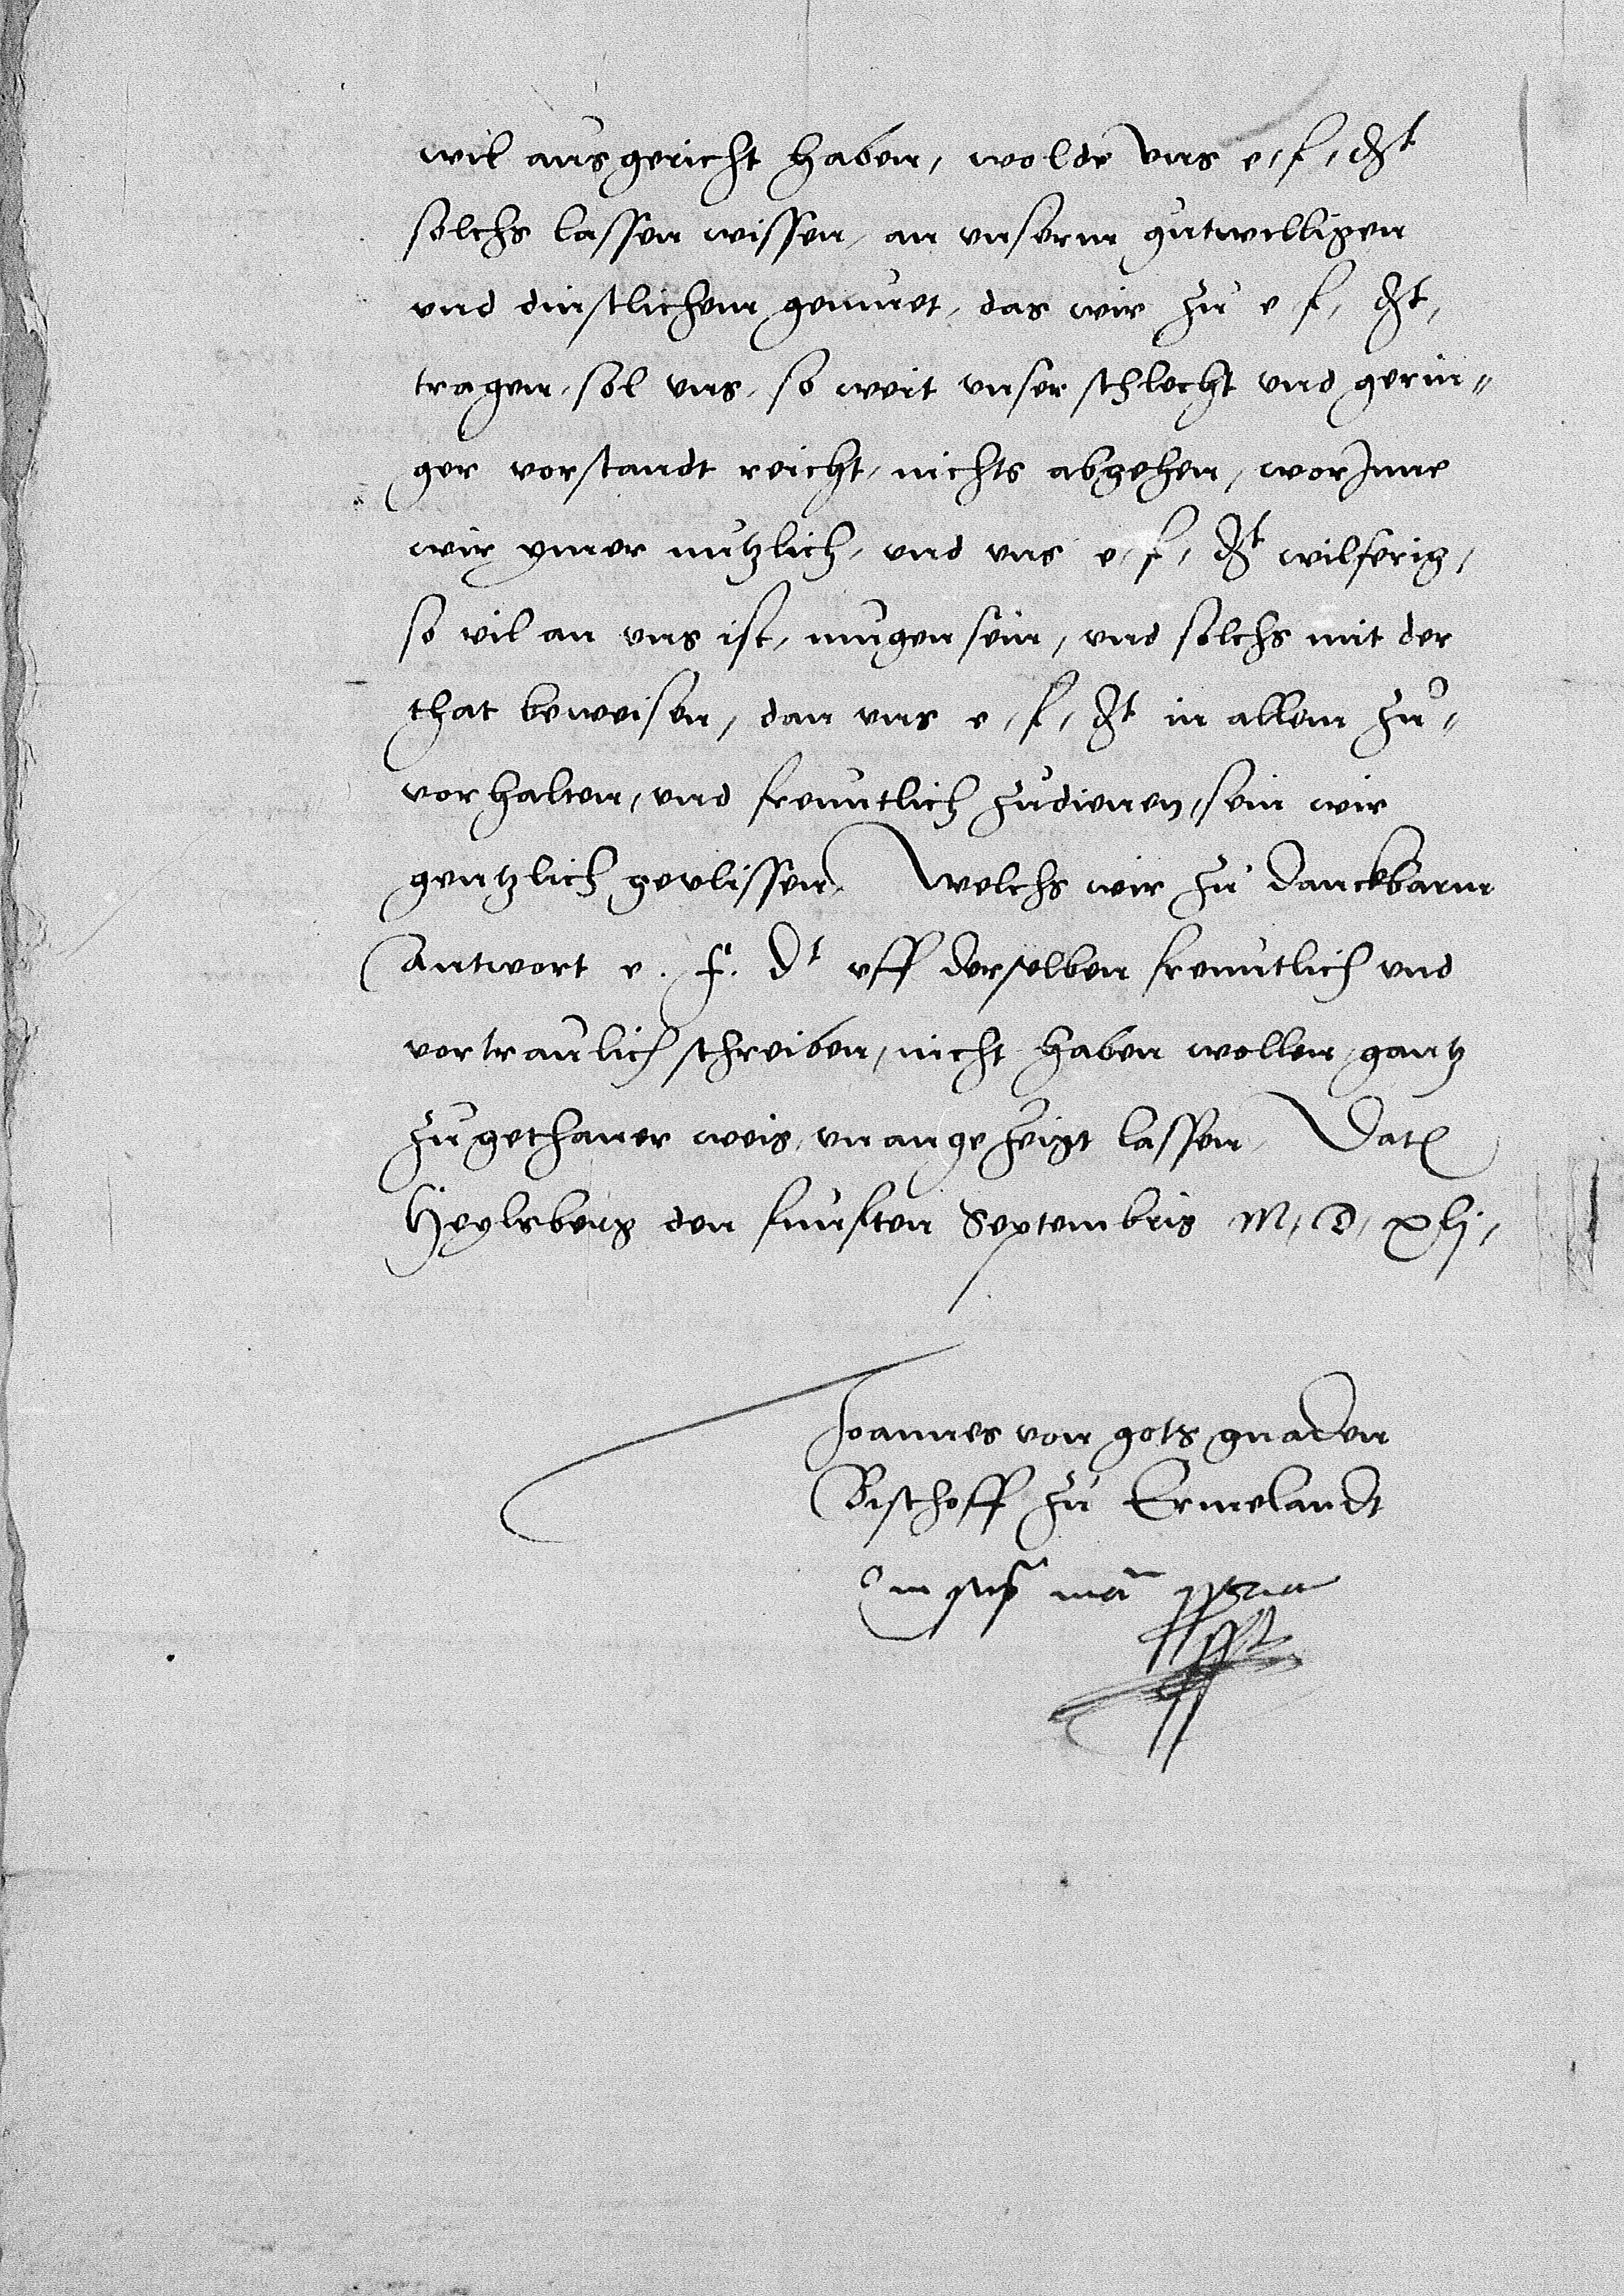 wil ausgericht haben, wolde vns e, f, dt
solchs lassen wissen, an vnserm gutwilligen
vnd dinstlichem gemuet, das wir zu e f, dt,
tragen, sol vns, so weit vnser schlecht vnd gerin-
ger vorstandt reicht, nichts abgehen, worJnne
wir ymer nutzlich, vnd vns e, f, dt wilferig,
so vil an vns ist, mugen sein, vnd solchs mit der
that beweisen, dan vns e, f, dt in allem zu-
vorhalten, vnd freuntlich zudienen, sein wir
gentzlich gevlissen. Welchs wir zu danckbarm
Antwort e. f. dt vff derselben freuntlich vnd
vortraulich schreiben, nicht haben wollen, gantz
zugethaner weis, vnangezeigt lassen, Dat
Heylsberg den funften Septembris M, D, xlj,
Joannes von gots gnaden
Bischoff zu Ermelandt